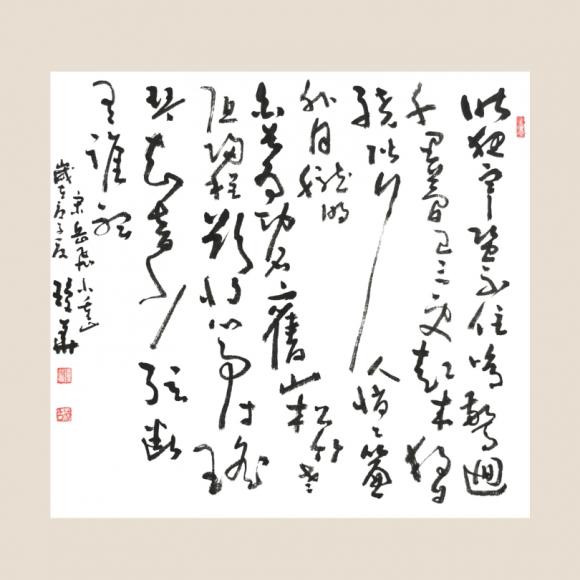 昨夜寒蛩不住鳴驚迴
千里夢已三更起來獨自
繞階行人悄悄簾
外月朧明
白首為功名舊山松竹老
阻歸程欲將心事付瑤
琴知音少弦断
有誰聽
宋岳飛小重山
歲在庚子夏